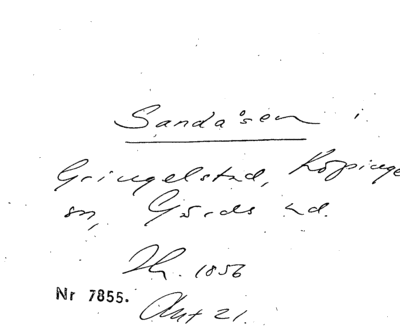 Sandåsen i
Gringelstad, Köpinge
sn, Gärds hd.
Th. 1856
Nr 7855.
Akt 21.